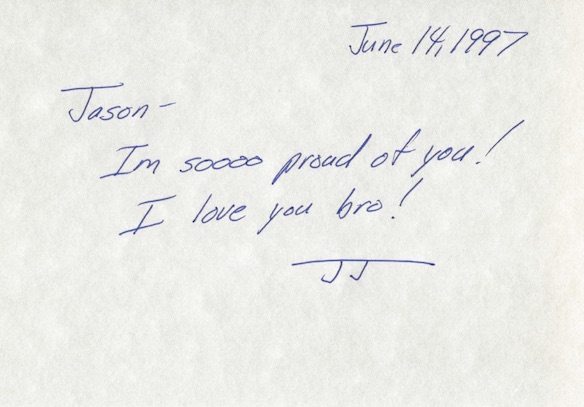 June 14, 1997
Jason-
Im soooo proud of you!
I love you bro!
JJ